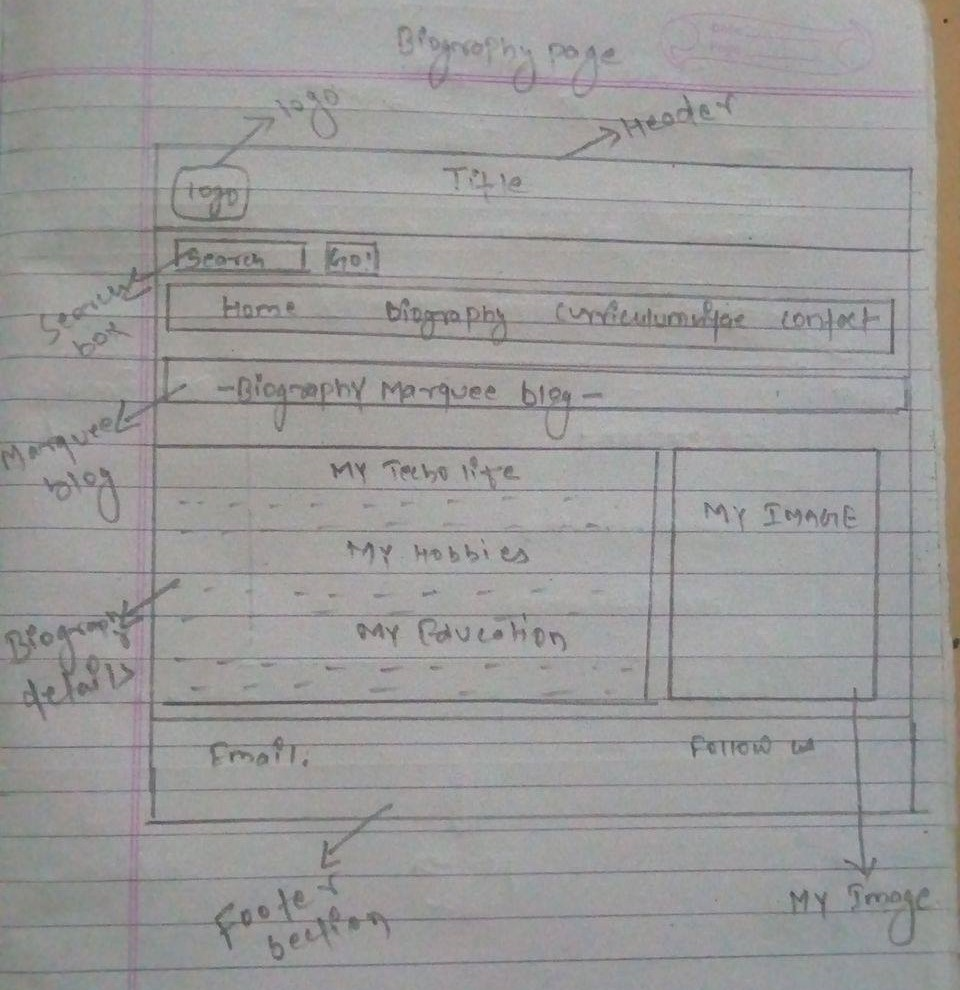 Biography page
logo
Header
logo
Title
Search
Go!
Search box
Home Biography Curriculumvitae contact
-Biography Marquee blog-
Marquee blog
My Techo life
MY IMAGE
My Hobbies
My Education
Biography details
Email:
Follow us
Footer section
My Image